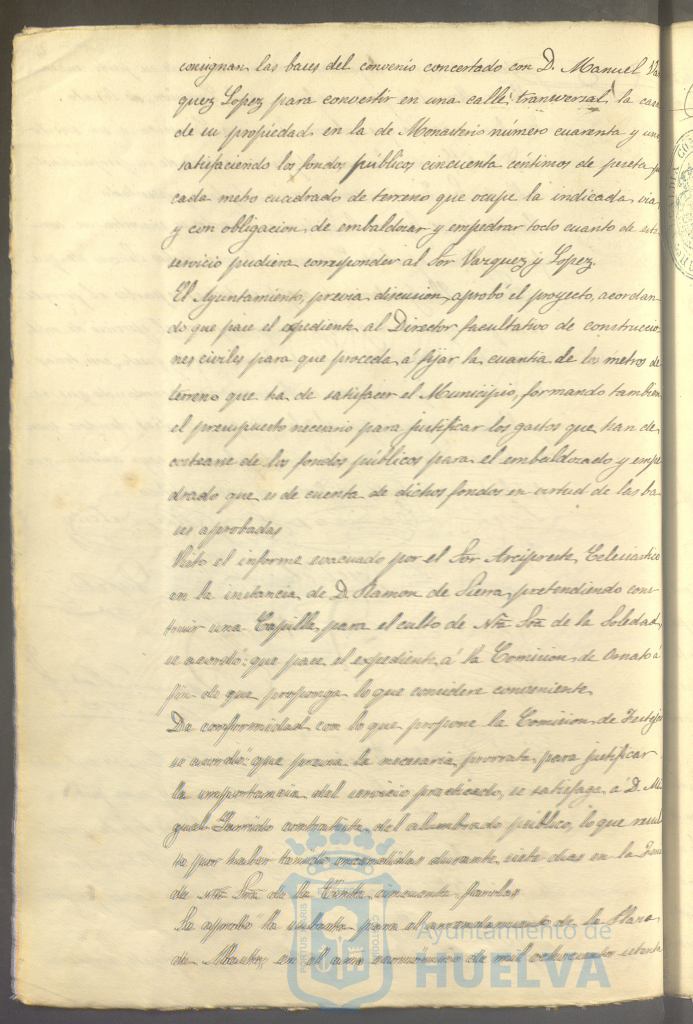 consignan las bases del convenio concertado con D. Manuel Vaz
quez Lopez para convertir en una calle transversal la casa
de su propiedad en la de Monasterio número cuarenta y uno
satisfaciendo los fondos públicos cincuenta céntimos de peseta p
cada metro cuadrado de terreno que ocupe la indicada via
y con obligacion de embaldosar y empedrar todo cuanto de este
servicio pudiera corresponder al Sor Vazquez y Lopez
El Ayuntamiento, previa discusion, aprobó el proyecto, acordan
do que pase el expediente al Director facultativo de construccio
nes civiles para que proceda á fijar la cuantia de los metros de
terreno que ha de satisfacer el Municipio, formando tambien
el presupuesto necesario para justificar los gastos que han de
costearse de los fondos públicos para el embaldosado y empe
drado que es de cuenta de dichos fondos en virtud de las ba
ses aprobadas
Visto el informe evacuado por el Sor Arcipreste Eclesiastico
en la instancia de D. Ramon de Sierra, pretendiendo cons
truir una Capilla para el culto de Ntra Sra de la Soledad,
se acordó: que pase el expediente á la Comision de Ornato á
fin de que proponga lo que considere conveniente
De conformidad con lo que propone la Comision de Festejos
se acordó: que previa la necesaria prorrata para justificar
la importancia del servicio practicado, se satisfaga á D. Mi
guel Garrido contratista del alumbrado público, lo que resul
te por haber tenido encendidas durante siete dias en la
de Ntra Sra de la Cinta, cincuenta farolas
Se aprobó la subasta para el arrendamiento de la Plaza
de Abastos, en el año económico de mil ochocientos setenta
Ayuntamiento de
HUELVA
PORTUS MARIS
CUSTODIA